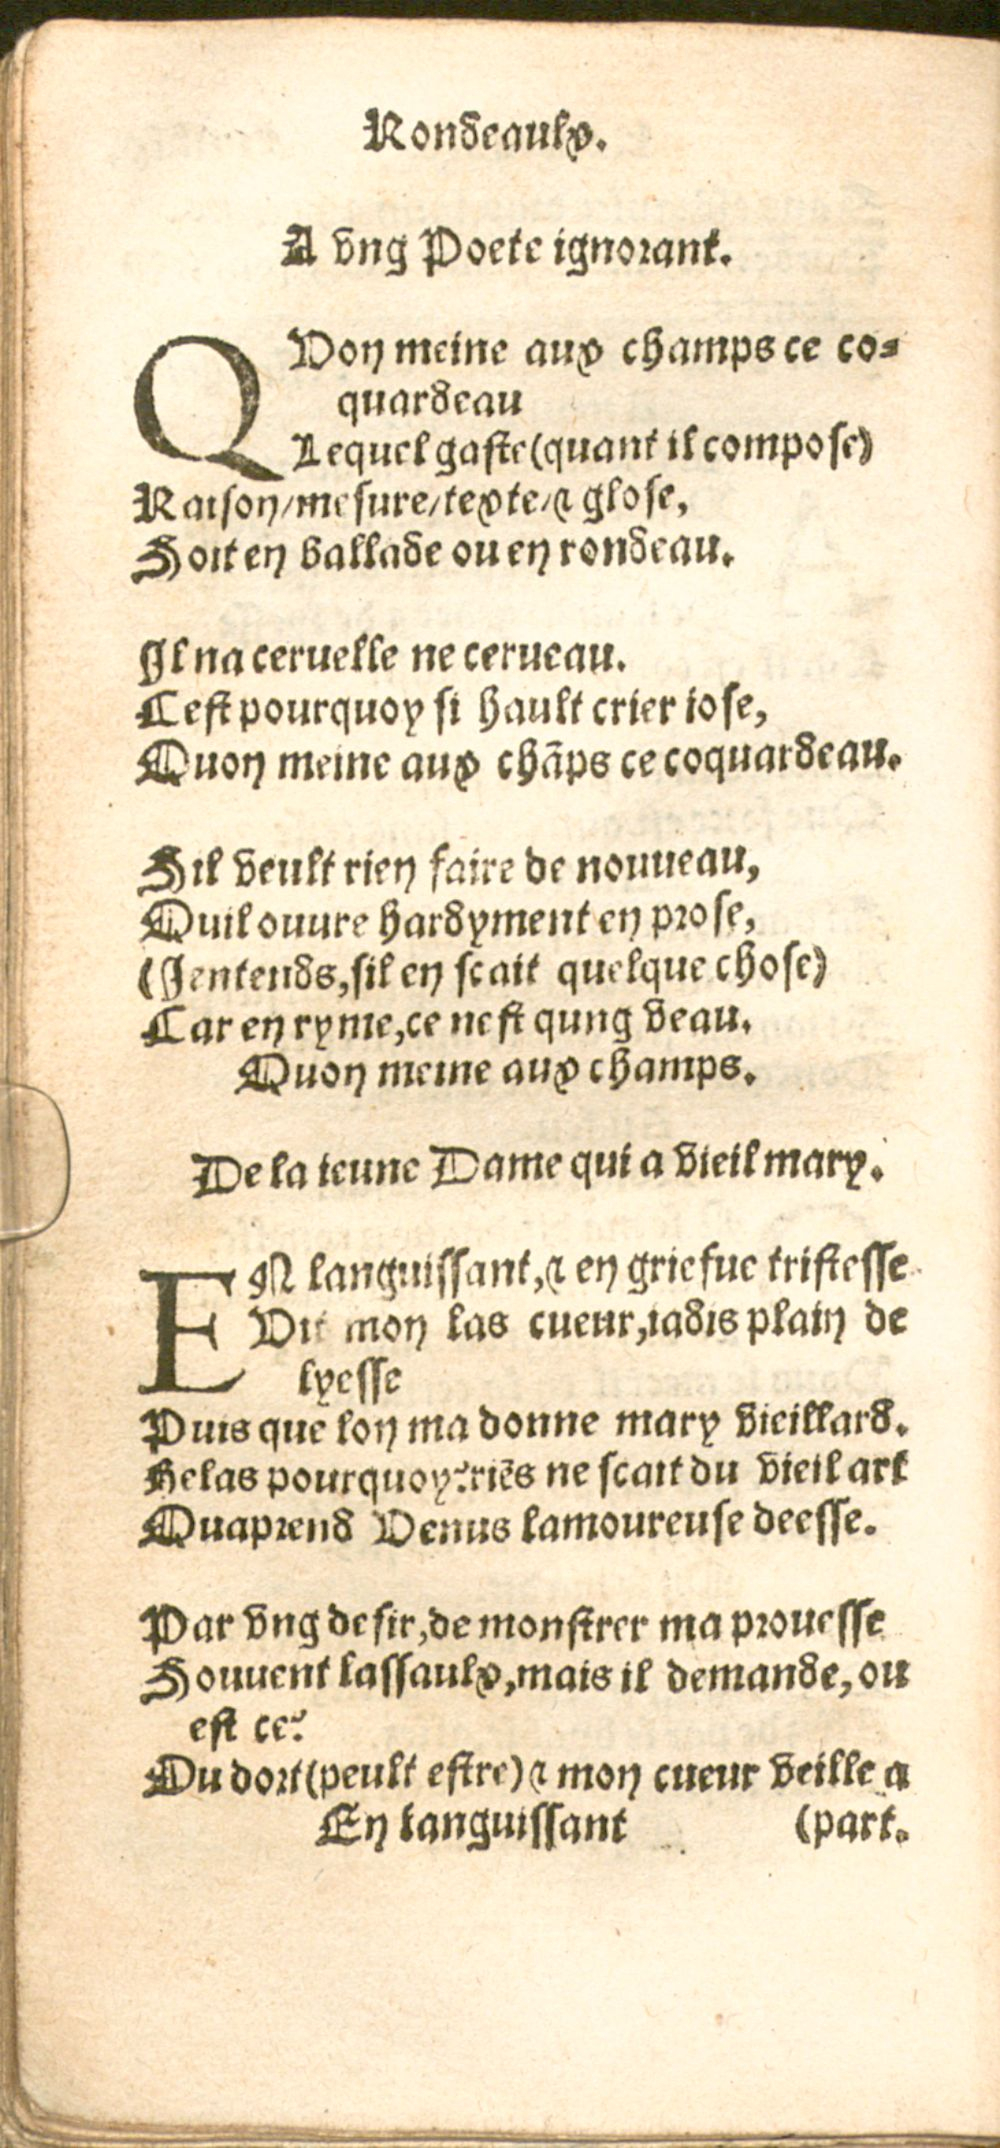 Rondeaulx.
A vng Poete ignorant.
QVon meine aux champs ce co-
quardeau
Lequel gaste (quant il compose)
Raison/mesure/texte/⁊ glose,
Soit en ballade ou en rondeau.
Il na ceruelle ne cerueau.
Cest pourquoy si hault crier iose,
Quon meine aux chãps ce coquardeau.
Sil veult rien faire de nouueau,
Quil ouure hardyment en prose,
(Jentends, sil en scait quelque chose)
Car en ryme, ce nest qung veau.
Quon meine aux champs.
De la ieune Dame qui a vieil mary.
EN languissant, ⁊ en griefue tristesse
Vit mon las cueur, iadis plain de
lyesse
Puis que lon ma donne mary vieillard.
Helas pourquoy? riẽs ne scait du vieil art
Quaprend Venus lamoureuse deesse.
Par vng desir, de monstrer ma prouesse
Souuent lassaulx, mais il demande, ou
est ce?
Ou dort (peult estre) ⁊ mon cueur veille a
En languissant (part.